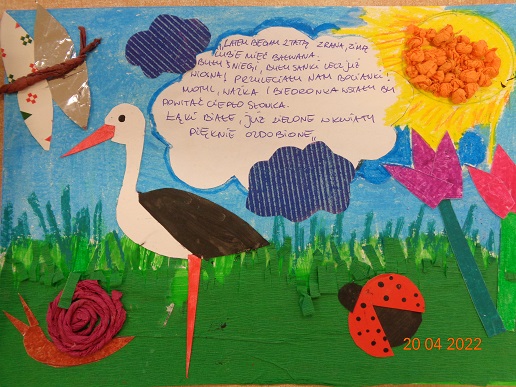 „LATEM BEGAM Z TATĄ Z RANA, ZIMĄ
LUBIĘ MIEĆ BAŁWANA.
BYŁY ŚNIEGI, BYŁY SANKI LECZ JUŻ
WIOSNA! PRZYLECIAŁY NAM BOCIANKI!
MOTYL, WAŻKA I BIEDRONKA WSTAŁY BY
POWITAĆ CIEPŁO SŁONKA.
ŁĄKI BIAŁE, JUŻ ZIELONE W KWIATY
PIĘKNIE OZDOBIONE„
20 04 2022